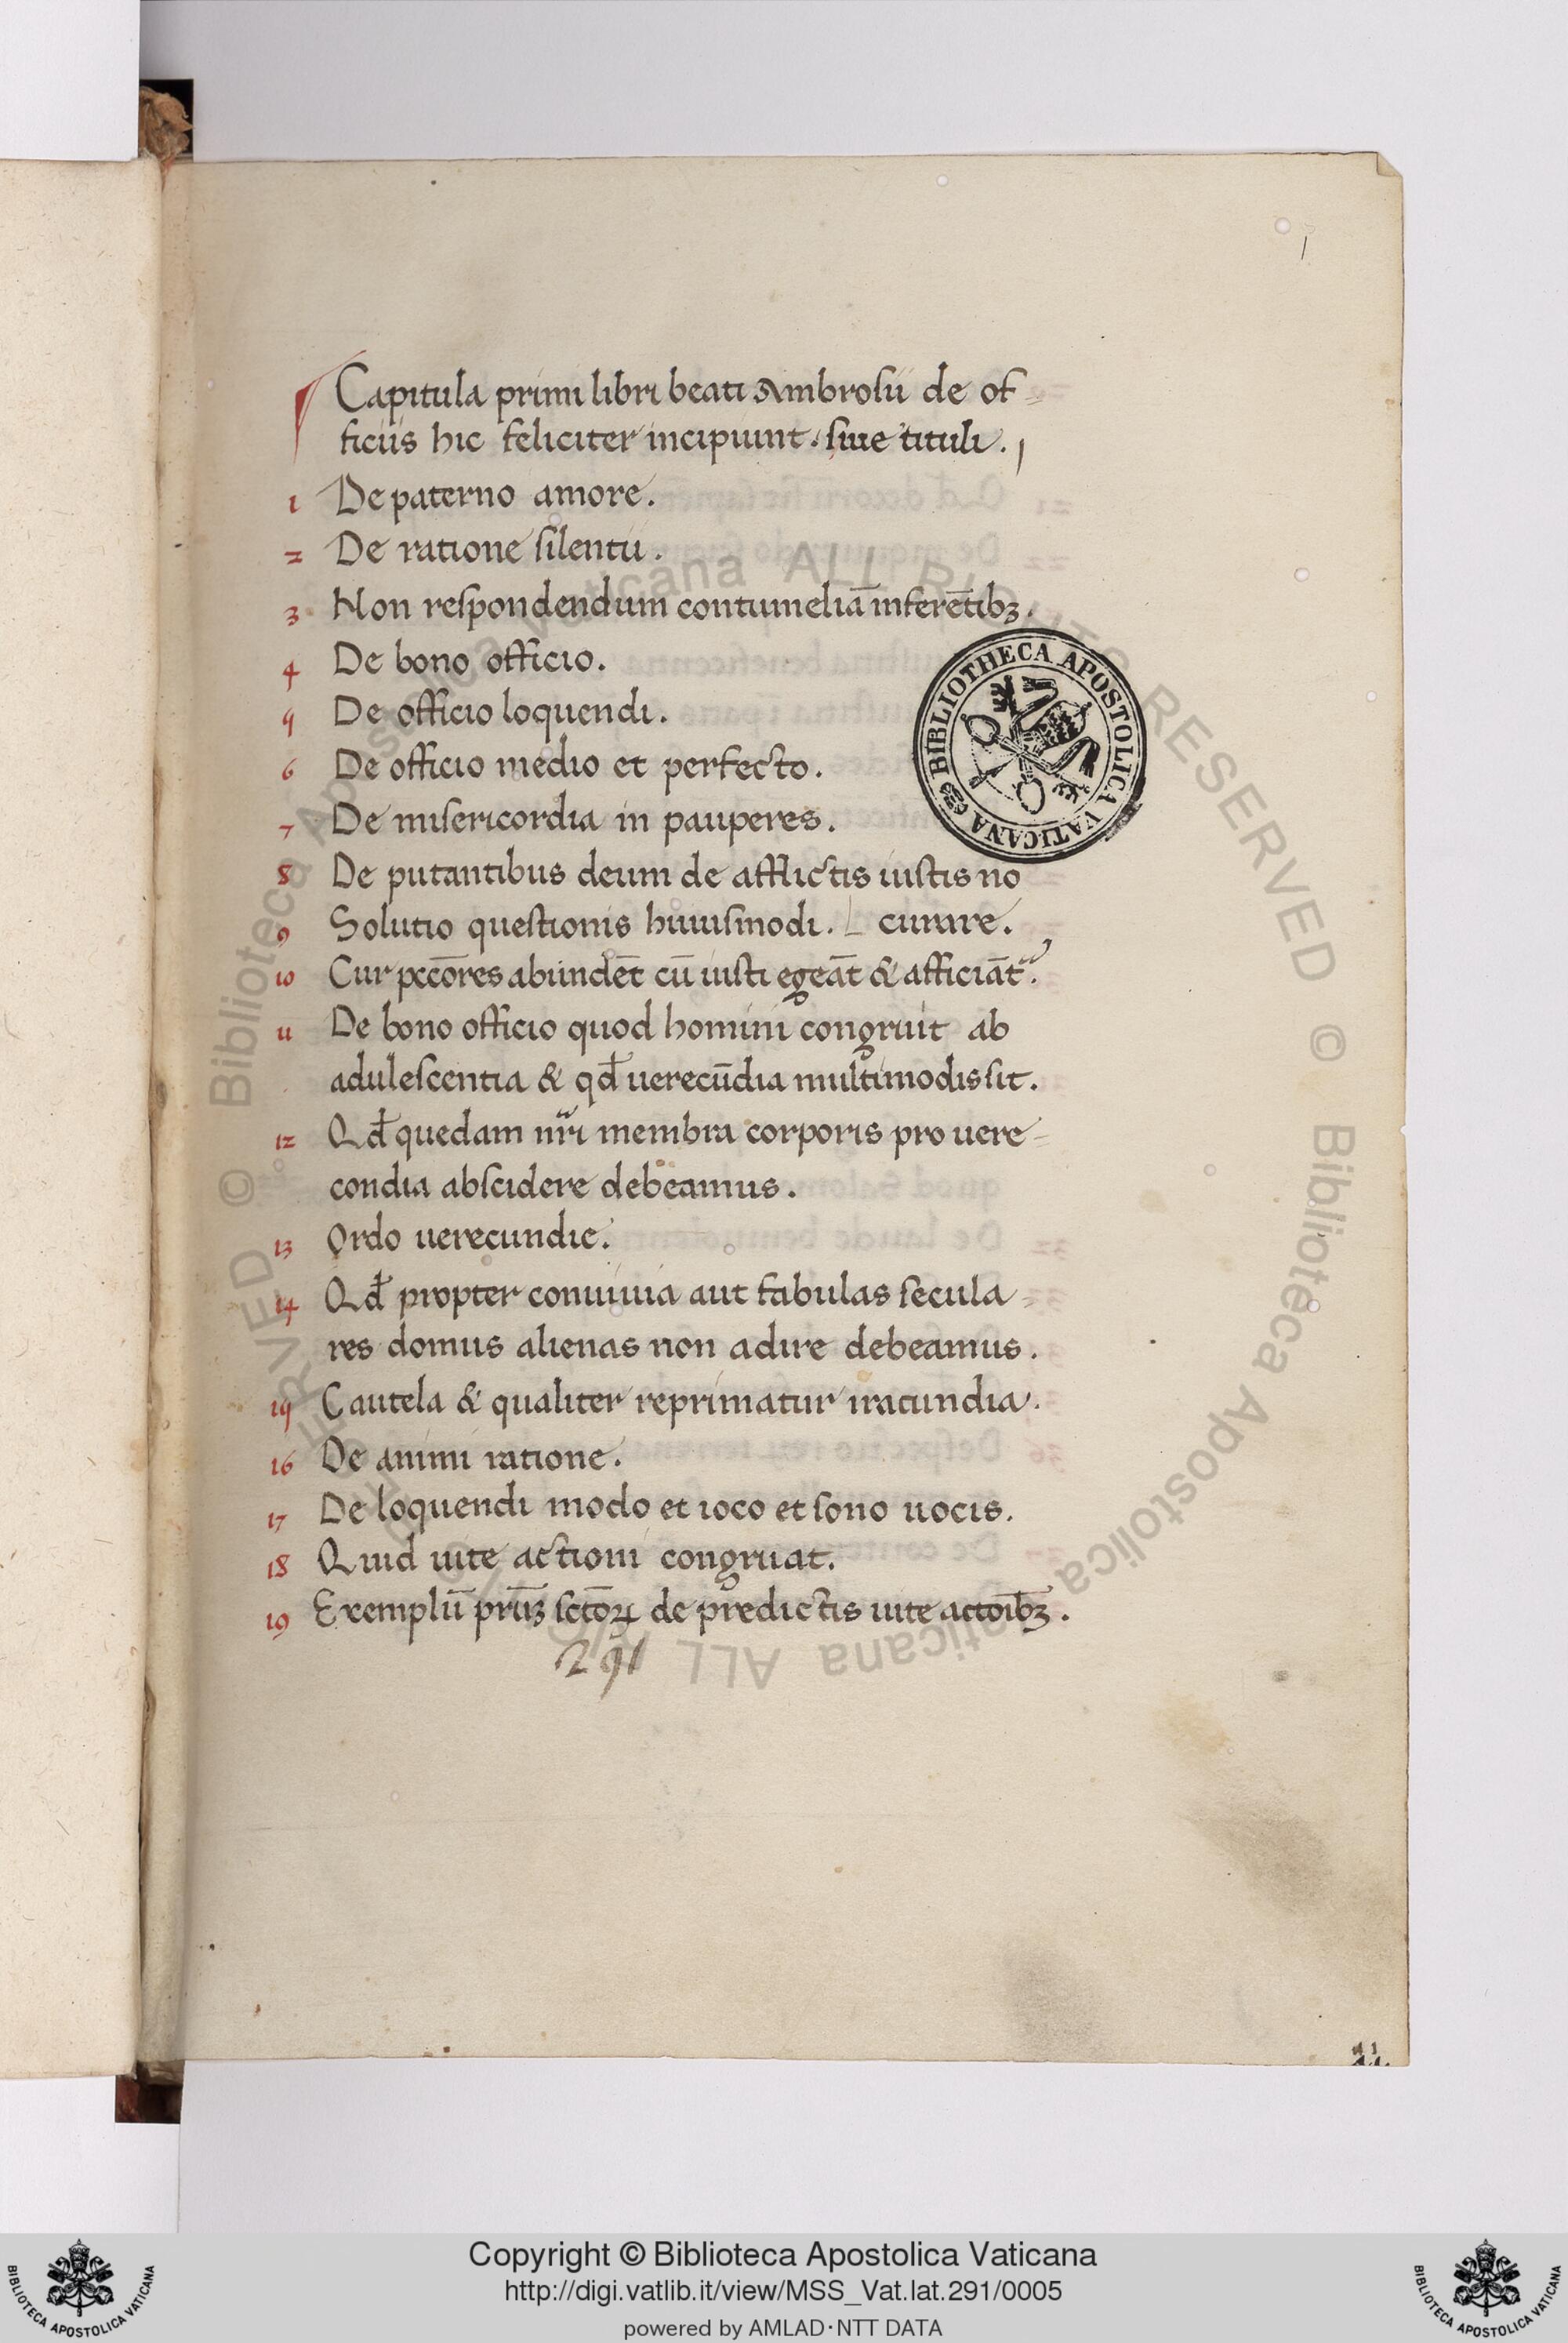 1
Capitula primi libri beati Ambrosii de of=
ficiis hic feliciter incipiunt. siue tituli.
1 De paterno amore.
2 De ratione silentii.
3 Non respondendum contumeliā inferētibꝫ.
4 De bono officio.
5 De officio loquendi.
6 De officio medio et perfecto.
7 De misericordia in pauperes.
8 De putantibus deum de afflictis iustis nō
9 Solutio questionis huiusmodi. L curare.
10 Cur pccōres abundēt cū iusti egeāt & afficiāt᷑.
11 De bono officio quod homini congruit ab
adulescentia & qđ uerecūdia multimodis sit.
12 Qđ quedam nr̄i membra corporis pro uere=
condia abscidere debeamus.
13 Ordo uerecundie.
14 Qđ propter conuiuia aut fabulas secula=
res domus alienas non adire debeamus.
15 Cautela & qualiter reprimatur iracundia.
16 De animi ratione.
17 De loquendi modo et ioco et sono uocis.
18 Quid uite actioni congruat.
19 Exemplū prīuꝫ sctōꝝ de predictis uite actōibꝫ.
291
BIBLIOTHECA APOSTOLICA VATICANA
© Biblioteca Apostolica Vaticana ALL RIGHTS RESERVED © Biblioteca Apostolica Vaticana ALL RIGHTS RESERVED
Copyright © Biblioteca Apostolica Vaticana
http://digi.vatlib.it/view/MSS_Vat.lat.291/0005
powered by AMLAD·NTT DATA
BIBLIOTECA APOSTOLICA VATICANA
BIBLIOTECA APOSTOLICA VATICANA